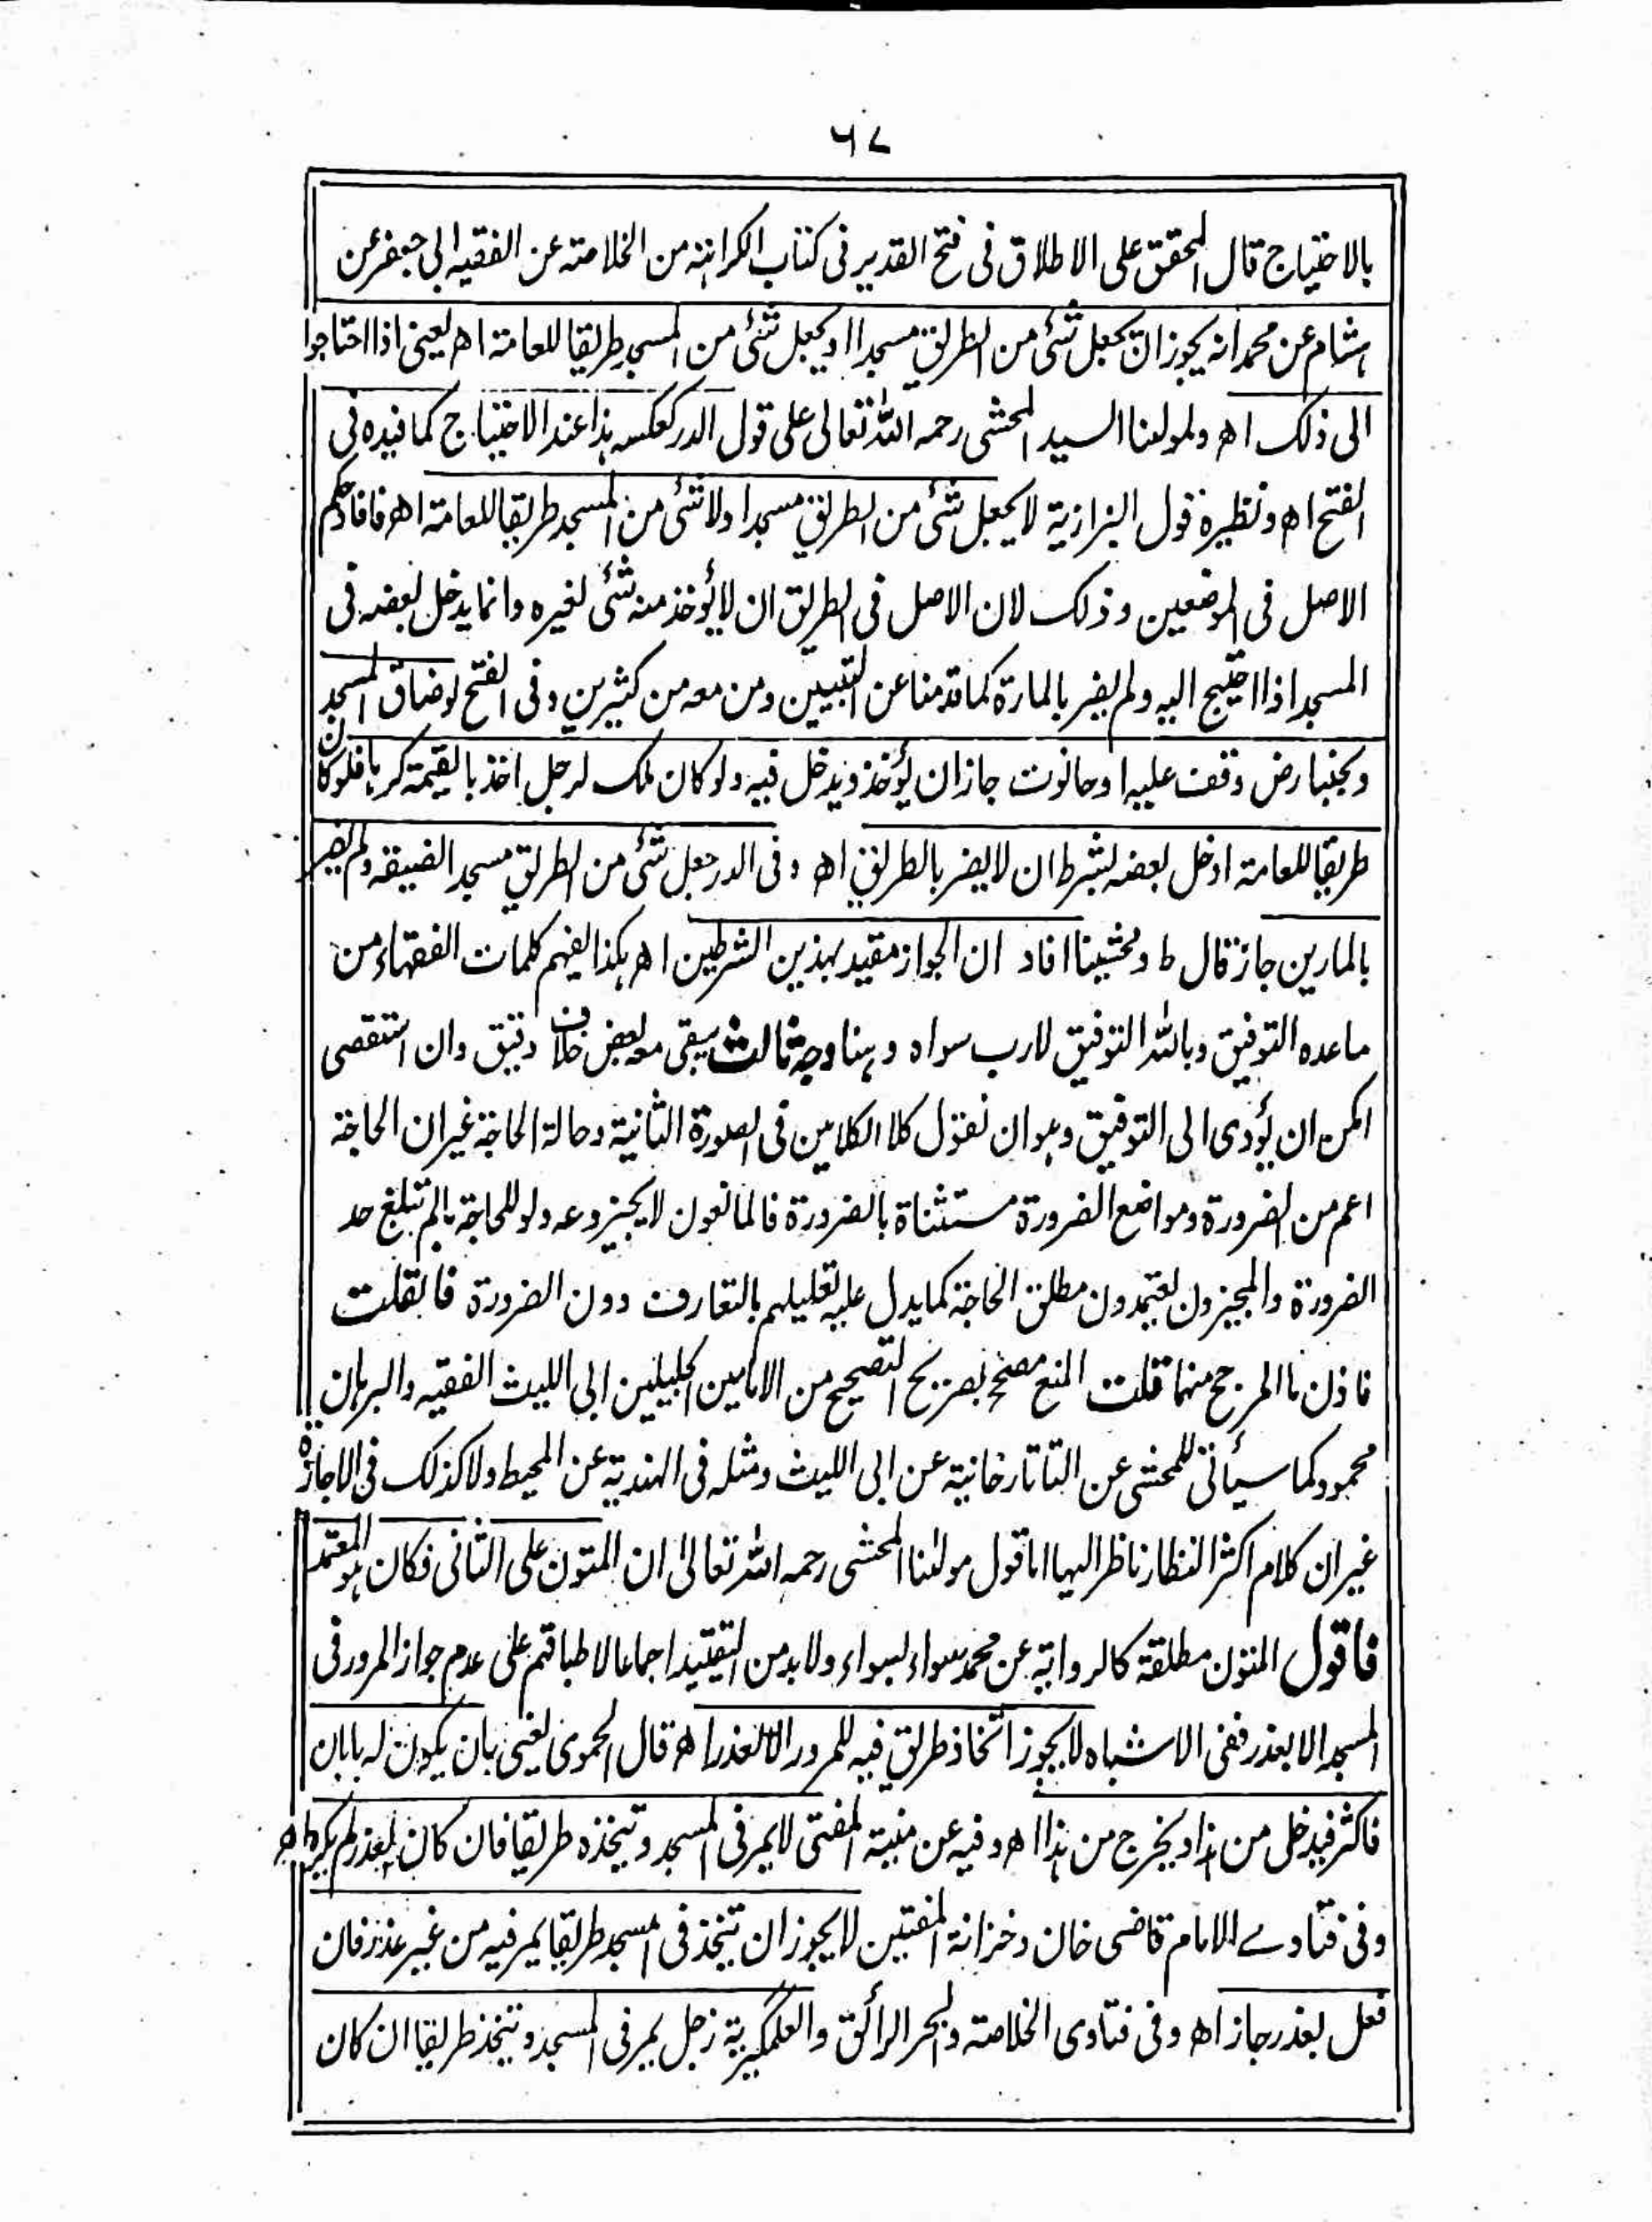 ٦٧
بالاحتياج قال المحقق على الاطلاق فى فتح القدير فى كتاب الكراهته من الخلاصته عن الفقيه ابى جعفر عن
هشام عن محمد انه يجوز ان يجعل شئى من الطريق مسجدا او يجعل شئى من المسجد طريقا للعامته اھ يعنى اذا احتاجوا
الى ذلك اھ ولمولىنا السيد المحشى رحمه الله تعالى على قول الدر كعكسه هذا عند الاحتياج كما قيده فى
الفتح اھ ونظيره قول البزازية لا يجعل شئى من الطريق مسجدا ولا شئى من المسجد طريقا للعامته اھ فافاد حكم
الاصل فى الموضعين وذلك لان الاصل فى الطريق ان لا يؤخذ منه شئى لغيره وانما يدخل بعضه فى
المسجد اذا احتيج اليه ولم يضر بالمارة كما قدمنا عن التبيين ومن معه من كثيرين وفى الفتح لو ضاق المسجد
وبجنبه ارض وقف عليه او حانوت جاز ان يؤخذ ويدخل فيه ولو كان ملك لرجل اخذ بالقيمة كرہا فلو كان
طريقا للعامته ادخل بعضه بشرط ان لا يضر بالطريق اھ وفى الدر جعل شئى من الطريق مسجدا لضيقه ولم يضر
بالمارين جاز قال ط ومحشينا افاد ان الجواز مقيد بهذين الشرطين اھ هكذا يفهم كلمات الفقهاء من
ما عده التوفيق وبالله التوفيق لا رب سواه وهنا وجه ثالث يبقى معه بعض خلاف دقيق وان استقصى
امكن ان يؤدى الى التوفيق وهو ان نقول كلا الكلامين فى الصورة الثانية وحالة الحاجة غير ان الحاجة
اعم من الضرورة ومواضع الضرورة مستثناة بالضرورة فالمانعون لا يجيزوعه ولو للحاجة مالم تبلغ حد
الضرورة والمجيزون يعتمدون مطلق الحاجة كما يدل عليه تعليلهم بالتعارف دون الضرورة فانقلت
فاذن ما المرجح منهما قلت المنع مصحح بصريح التصحيح من الامامين الجليلين ابى الليث الفقيه والبرهان
محمود كما سيأتى للمحشى عن التاتارخانية عن ابى الليث ومثله فى الهندية عن المحيط ولا كذلك فى الاجازة
غير ان كلام اكثر النظار ناظر اليها اما قول مولىنا المحشى رحمه الله تعالىٰ ان المتون على الثانى فكان هو المعتمد
فاقول المتون مطلقة كالرواية عن محمد سواء بسواء ولا بد من التقييد اجماعا لاطباقهم على عدم جواز المرور فى
المسجد الا بعذر ففى الاشباه لا يجوز اتخاذ طريق فيه للمرور الا لعذر اھ قال الحموى يعنى بان يكون له بابان
فاكثر فيدخل من هذا ويخرج من هذا اھ وفيه عن منية المفتى لا يمر فى المسجد ويتخذه طريقا فان كان بعذر لم يكره اھ
وفى فتاوے الامام قاضى خان وخزانة المفتيين لا يجوز ان يتخذ فى المسجد طريقا يمر فيه من غير عذر فان
فعل بعذر جاز اھ وفى فتاوى الخلاصته والبحر الرائق والعلمگيرية رجل يمر فى المسجد ويتخذ طريقا ان كان